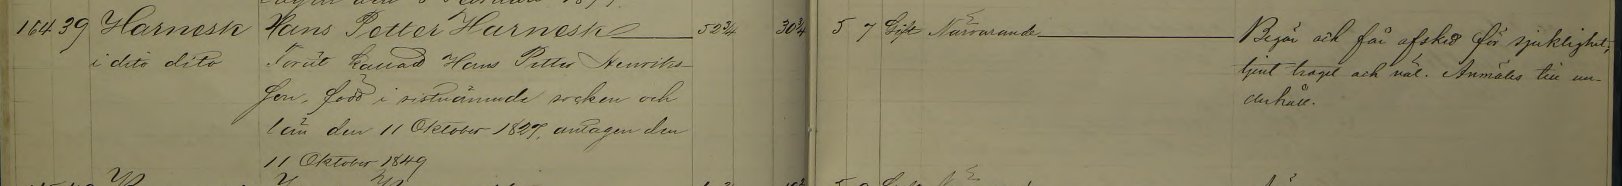 164 39 Harnesk Hans Petter Harnesk 52 3/4 30 3/4 5 7 Gift Närvarande Begär och får afsked för sjuklighet,
i dito dito Förut kallad Hans Petter Henriks- tjent troget och väl. Anmäles till un-
son, född i sistnämnde socken och derhåll.
län den 11 Oktober 1827, antagen den
11 Oktober 1849